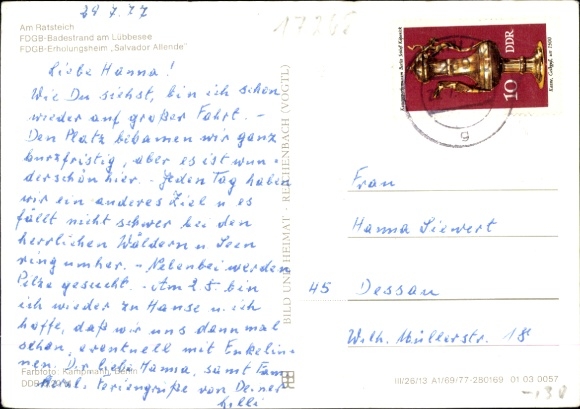 28.7.77
17268
Am Ratsteich
FDGB-Badestrand am Lübbesee
FDGB-Erholungsheim „Salvador Allende"
Liebe Hanna!
Wie Du siehst, bin ich schon
wieder auf großer Fahrt. –
Den Platz bekamen wir ganz
kurzfristig, aber es ist wun-
derschön hier. – Jeden Tag haben
wir ein anderes Ziel u es
fällt nicht schwer bei den
herrlichen Wäldern u Seen
ring umher. – Nebenbei werden
Pilze gesucht. – Am 25. bin
ich wieder zu Hause u. ich
hoffe, daß wir uns dann mal
sehen, eventuell mit Enkelin-
nen. Dir liebe Hanna, samt Fam
herzl. Feriengrüße von Deiner
Lilli
Farbfoto: Kampmann, Berlin
BILD UND HEIMAT · REICHENBACH (VOGTL)
Kunstgewerbemuseum Berlin Schloß Köpenick
10
DDR
g
Frau
Hanna Siewert
45 Dessau
Wilh. Müllerstr. 18
III/26/13 A1/69/77-280169 01 03 0057